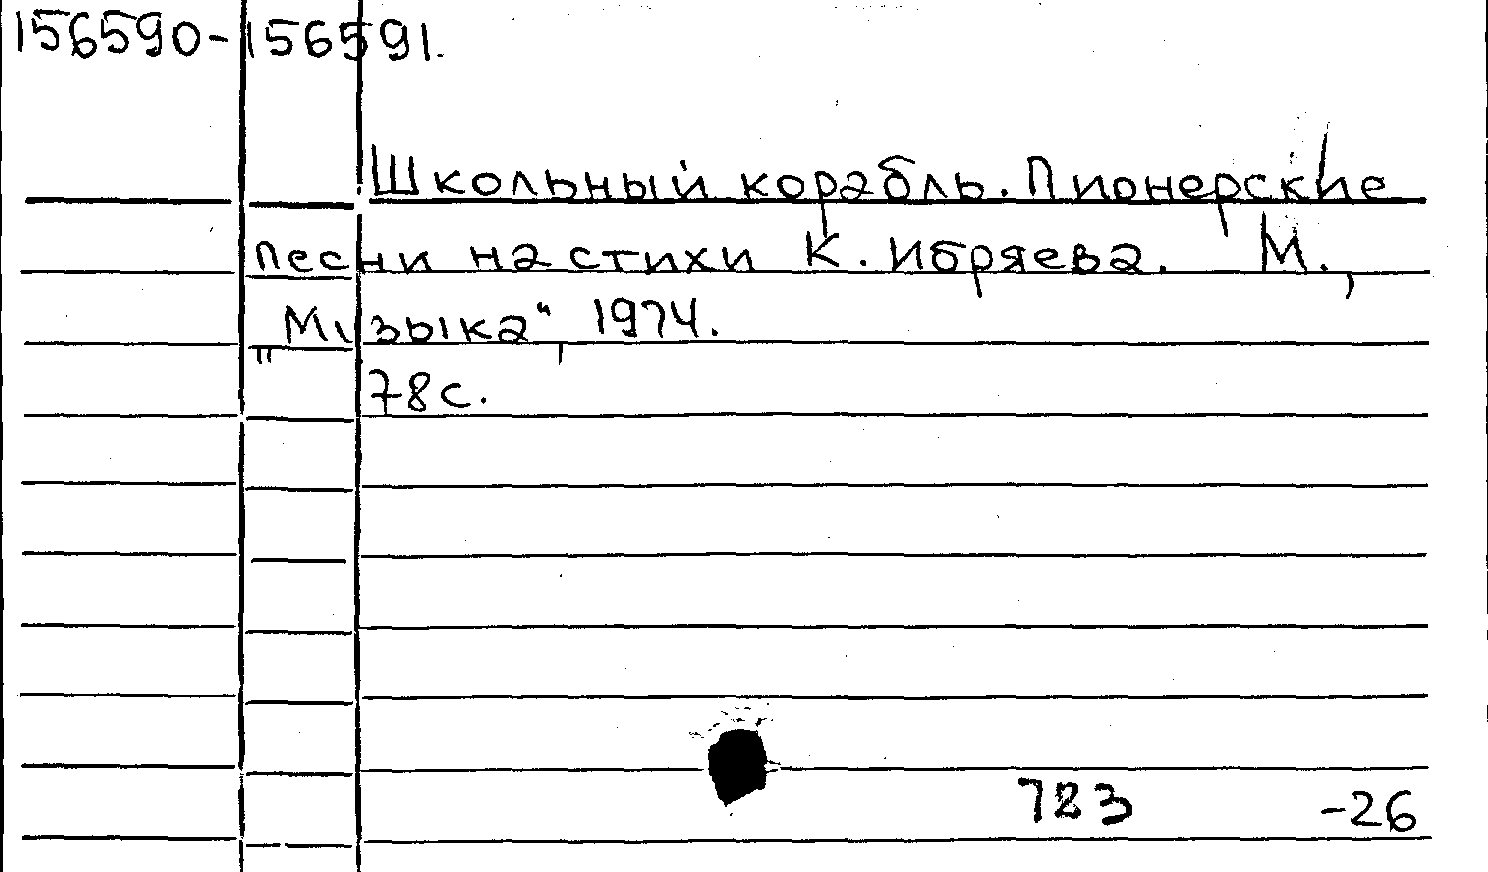 156590-156591.
Школьный корабль. Пионерские
песни на стихи К. Ибряева. М.,
„Музыка“, 1974.
78с.
723 -26